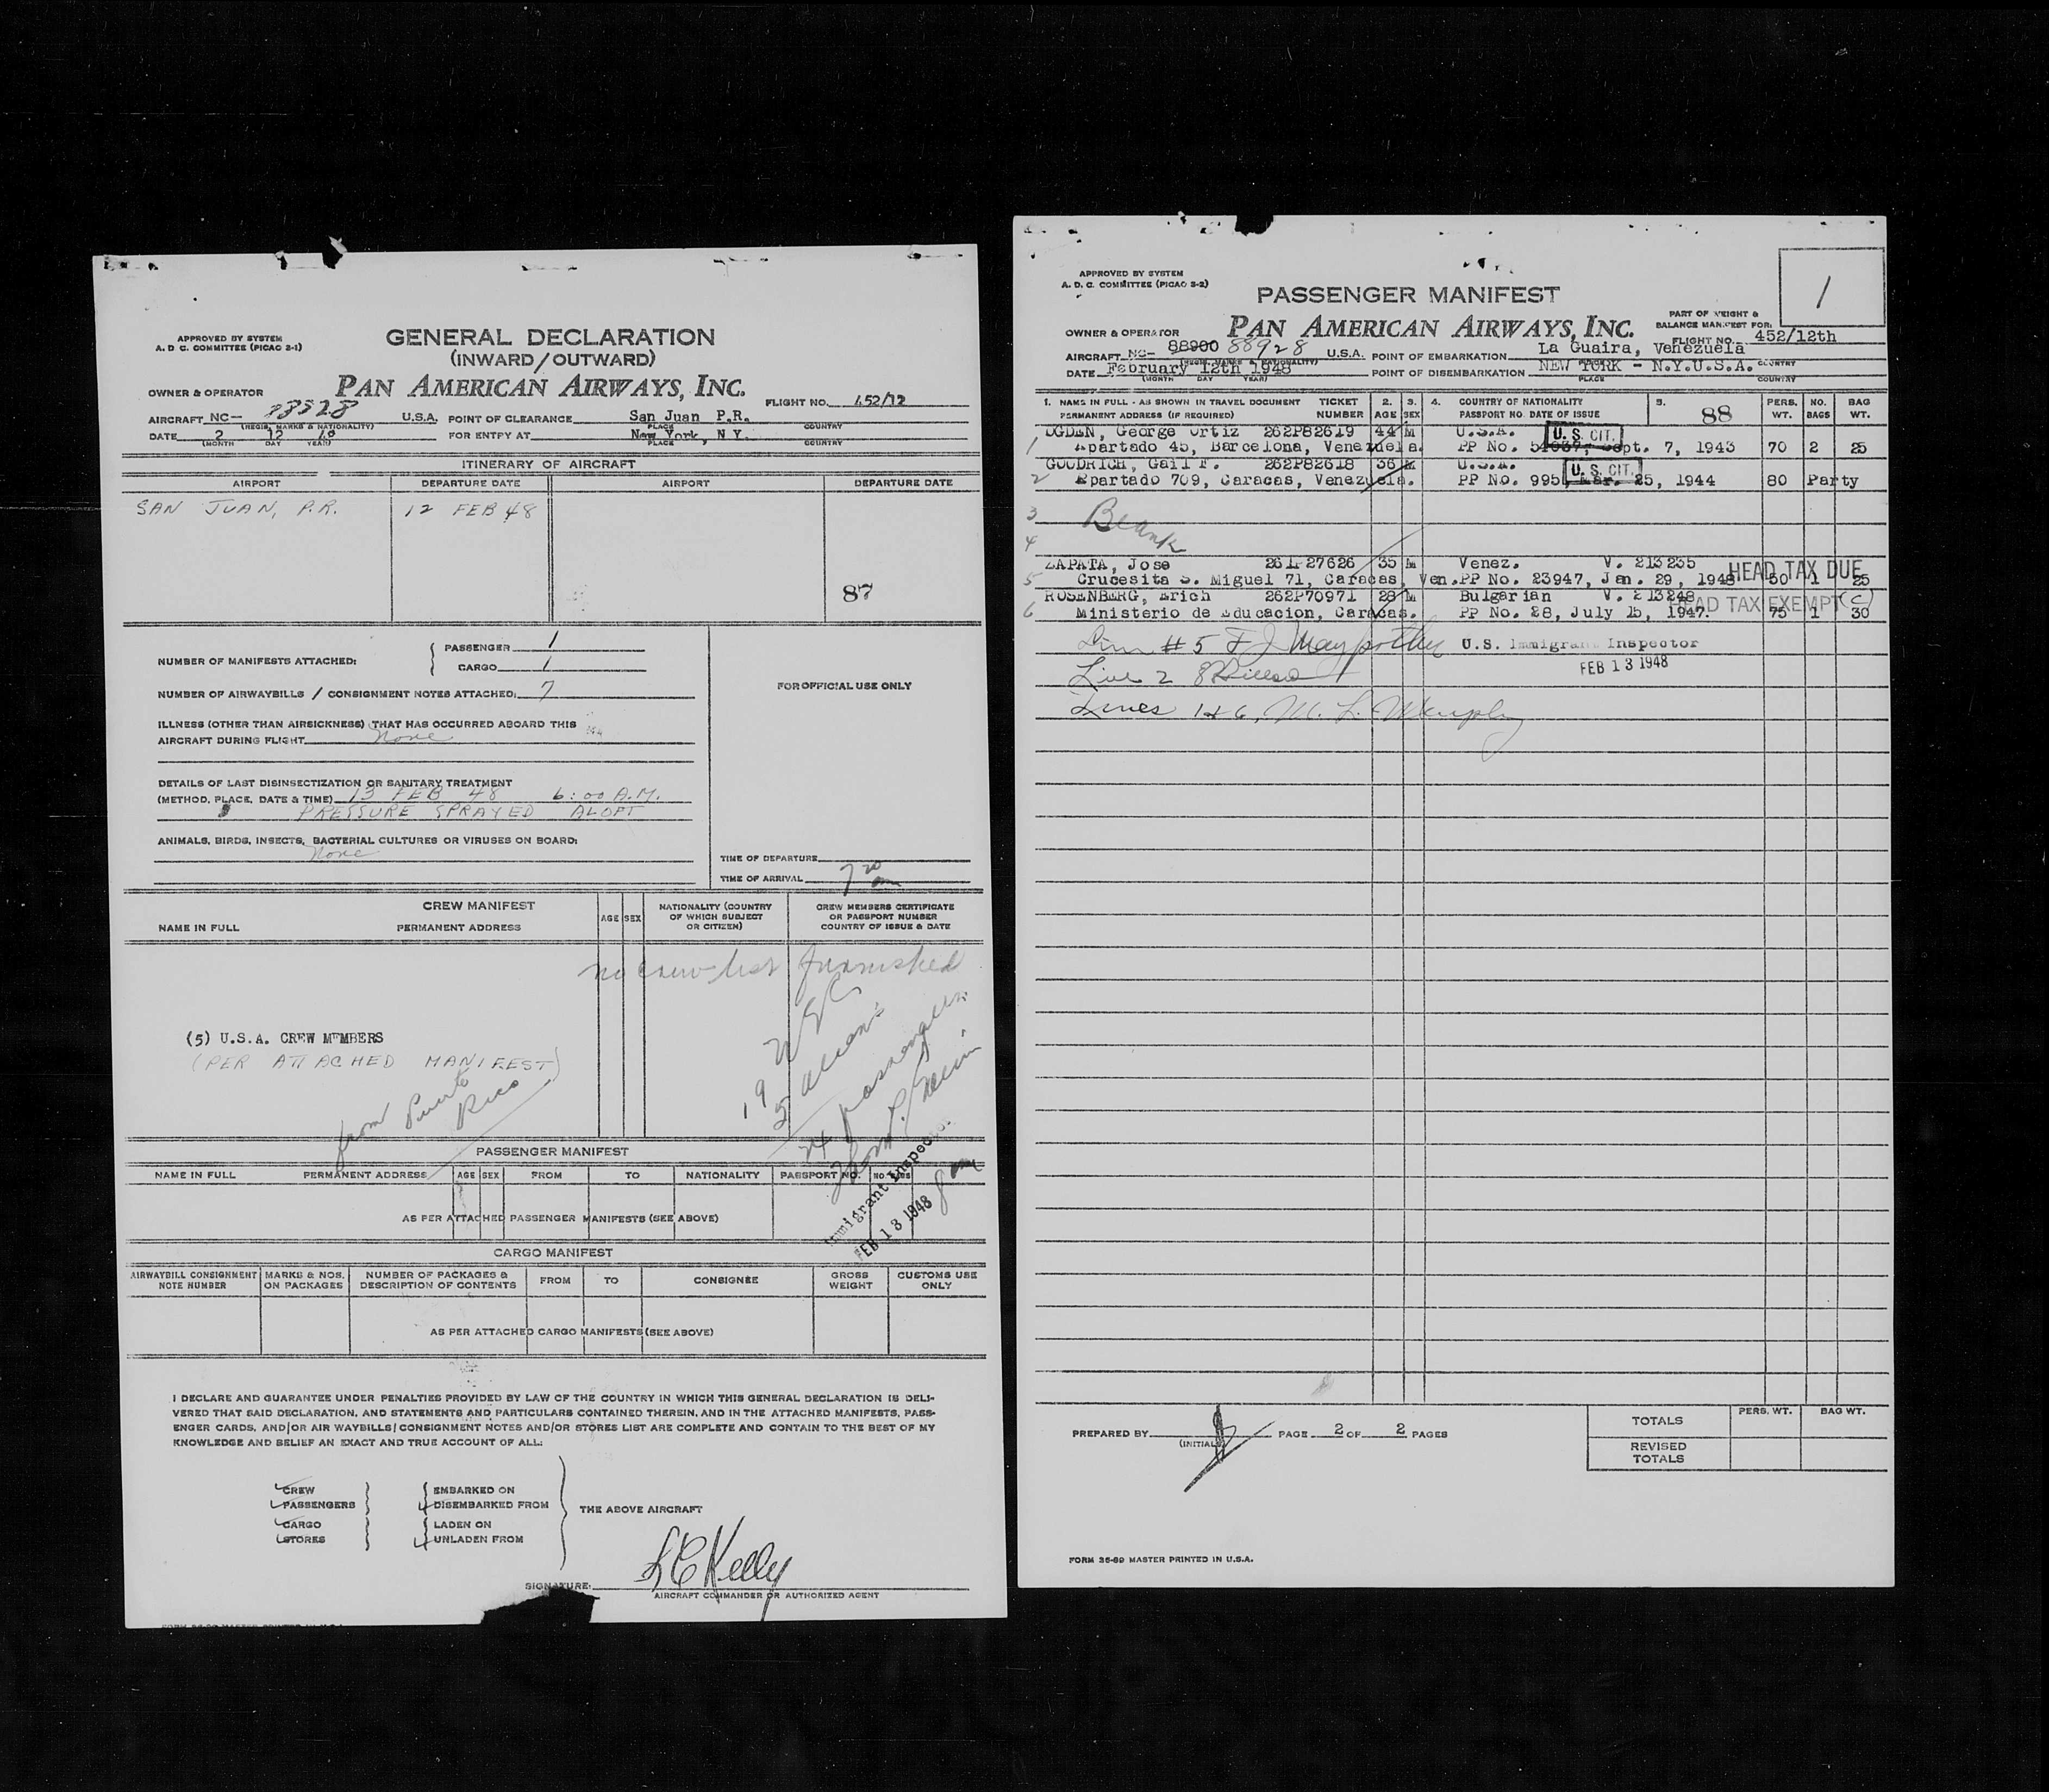 APPROVED BY SYSTEM
A. D. C. COMMITTEE (PICAO 2-1)
GENERAL DECLARATION
(INWARD/OUTWARD)
OWNER & OPERATOR PAN AMERICAN AIRWAYS, INC. FLIGHT NO. 452/12
AIRCRAFT NC- U.S.A. POINT OF CLEARANCE San Juan P.R.
(REGIS. MARKS & NATIONALITY) PLACE COUNTRY
DATE 2 12 FOR ENTRY AT New York, N.Y.
(MONTH DAY YEAR) PLACE COUNTRY
ITINERARY OF AIRCRAFT
AIRPORT DEPARTURE DATE AIRPORT DEPARTURE DATE
SAN JUAN, P.R. 12 FEB 48
87
NUMBER OF MANIFESTS ATTACHED: PASSENGER 1
CARGO 1
NUMBER OF AIRWAYBILLS / CONSIGNMENT NOTES ATTACHED: 7
FOR OFFICIAL USE ONLY
ILLNESS (OTHER THAN AIRSICKNESS) THAT HAS OCCURRED ABOARD THIS
AIRCRAFT DURING FLIGHT None
DETAILS OF LAST DISINSECTIZATION OR SANITARY TREATMENT
(METHOD, PLACE, DATE & TIME) 13 FEB 48 6:00 A.M.
PRESSURE SPRAYED ALOFT
ANIMALS, BIRDS, INSECTS, BACTERIAL CULTURES OR VIRUSES ON BOARD:
None
TIME OF DEPARTURE
TIME OF ARRIVAL 7 20 am
CREW MANIFEST
NAME IN FULL PERMANENT ADDRESS AGE SEX NATIONALITY (COUNTRY OF WHICH SUBJECT OR CITIZEN) CREW MEMBERS CERTIFICATE OR PASSPORT NUMBER COUNTRY OF ISSUE & DATE
no crew list furnished
19 USC
5 aliens
24 passengers
(5) U.S.A. CREW MEMBERS
(PER ATTACHED MANIFEST)
from Puerto Rico
Immigrant Inspector
FEB 13 1948
8 am
PASSENGER MANIFEST
NAME IN FULL PERMANENT ADDRESS AGE SEX FROM TO NATIONALITY PASSPORT NO.
AS PER ATTACHED PASSENGER MANIFESTS (SEE ABOVE)
CARGO MANIFEST
AIRWAYBILL CONSIGNMENT NOTE NUMBER MARKS & NOS. ON PACKAGES NUMBER OF PACKAGES & DESCRIPTION OF CONTENTS FROM TO CONSIGNEE GROSS WEIGHT CUSTOMS USE ONLY
AS PER ATTACHED CARGO MANIFESTS (SEE ABOVE)
I DECLARE AND GUARANTEE UNDER PENALTIES PROVIDED BY LAW OF THE COUNTRY IN WHICH THIS GENERAL DECLARATION IS DELI-
VERED THAT SAID DECLARATION, AND STATEMENTS AND PARTICULARS CONTAINED THEREIN, AND IN THE ATTACHED MANIFESTS, PASS-
ENGER CARDS, AND/OR AIR WAYBILLS/CONSIGNMENT NOTES AND/OR STORES LIST ARE COMPLETE AND CONTAIN TO THE BEST OF MY
KNOWLEDGE AND BELIEF AN EXACT AND TRUE ACCOUNT OF ALL:
CREW EMBARKED ON
PASSENGERS DISEMBARKED FROM
THE ABOVE AIRCRAFT
CARGO LADEN ON
STORES UNLADEN FROM
SIGNATURE: L E Kelly
AIRCRAFT COMMANDER OR AUTHORIZED AGENT
APPROVED BY SYSTEM
A. D. C. COMMITTEE (PICAO 3-2)
PASSENGER MANIFEST
1
PART OF WEIGHT &
BALANCE MANIFEST FOR:
OWNER & OPERATOR PAN AMERICAN AIRWAYS, INC. FLIGHT NO. 452/12th
AIRCRAFT NC- 88900 88928 U.S.A. POINT OF EMBARKATION La Guaira, Venezuela
(REGIS. MARKS & NATIONALITY) COUNTRY
DATE February 12th 1948 POINT OF DISEMBARKATION NEW YORK - N.Y.U.S.A.
(MONTH DAY YEAR) PLACE COUNTRY
1. NAME IN FULL - AS SHOWN IN TRAVEL DOCUMENT TICKET 2. 3. 4. COUNTRY OF NATIONALITY 5. 88 PERS. NO. BAG
PERMANENT ADDRESS (IF REQUIRED) NUMBER AGE SEX PASSPORT NO. DATE OF ISSUE WT. BAGS WT.
OGDEN, George Ortiz 262P82619 44 M U.S.A. U.S. CIT.
1 Apartado 45, Barcelona, Venezuela. PP No. Sept. 7, 1943 70 2 25
GOODRICH, Gail F. 262P82618 36 M U.S.A. U.S. CIT.
2 Apartado 709, Caracas, Venezuela. PP No. Mar. 25, 1944 80 Party
3 Blank
4
ZAPATA, Jose 35 M Venez. V. 213235 HEAD TAX DUE
5 Crucesita S. Miguel 71, Caracas, Ven. PP No. 23947, Jan. 29, 1948 50 1 25
ROSENBERG, Erich 262P70971 28 M Bulgarian V. 213248 HEAD TAX EXEMPT (C)
6 Ministerio de Educacion, Caracas. PP No. 28, July 15, 1947. 75 1 30
Line #5 U.S. Immigrant Inspector
FEB 13 1948
Line 2
Lines 1 & 6, M. L.
PREPARED BY (INITIALS) PAGE 2 OF 2 PAGES
TOTALS PERS. WT. BAG WT.
REVISED TOTALS
FORM 36-89 MASTER PRINTED IN U.S.A.